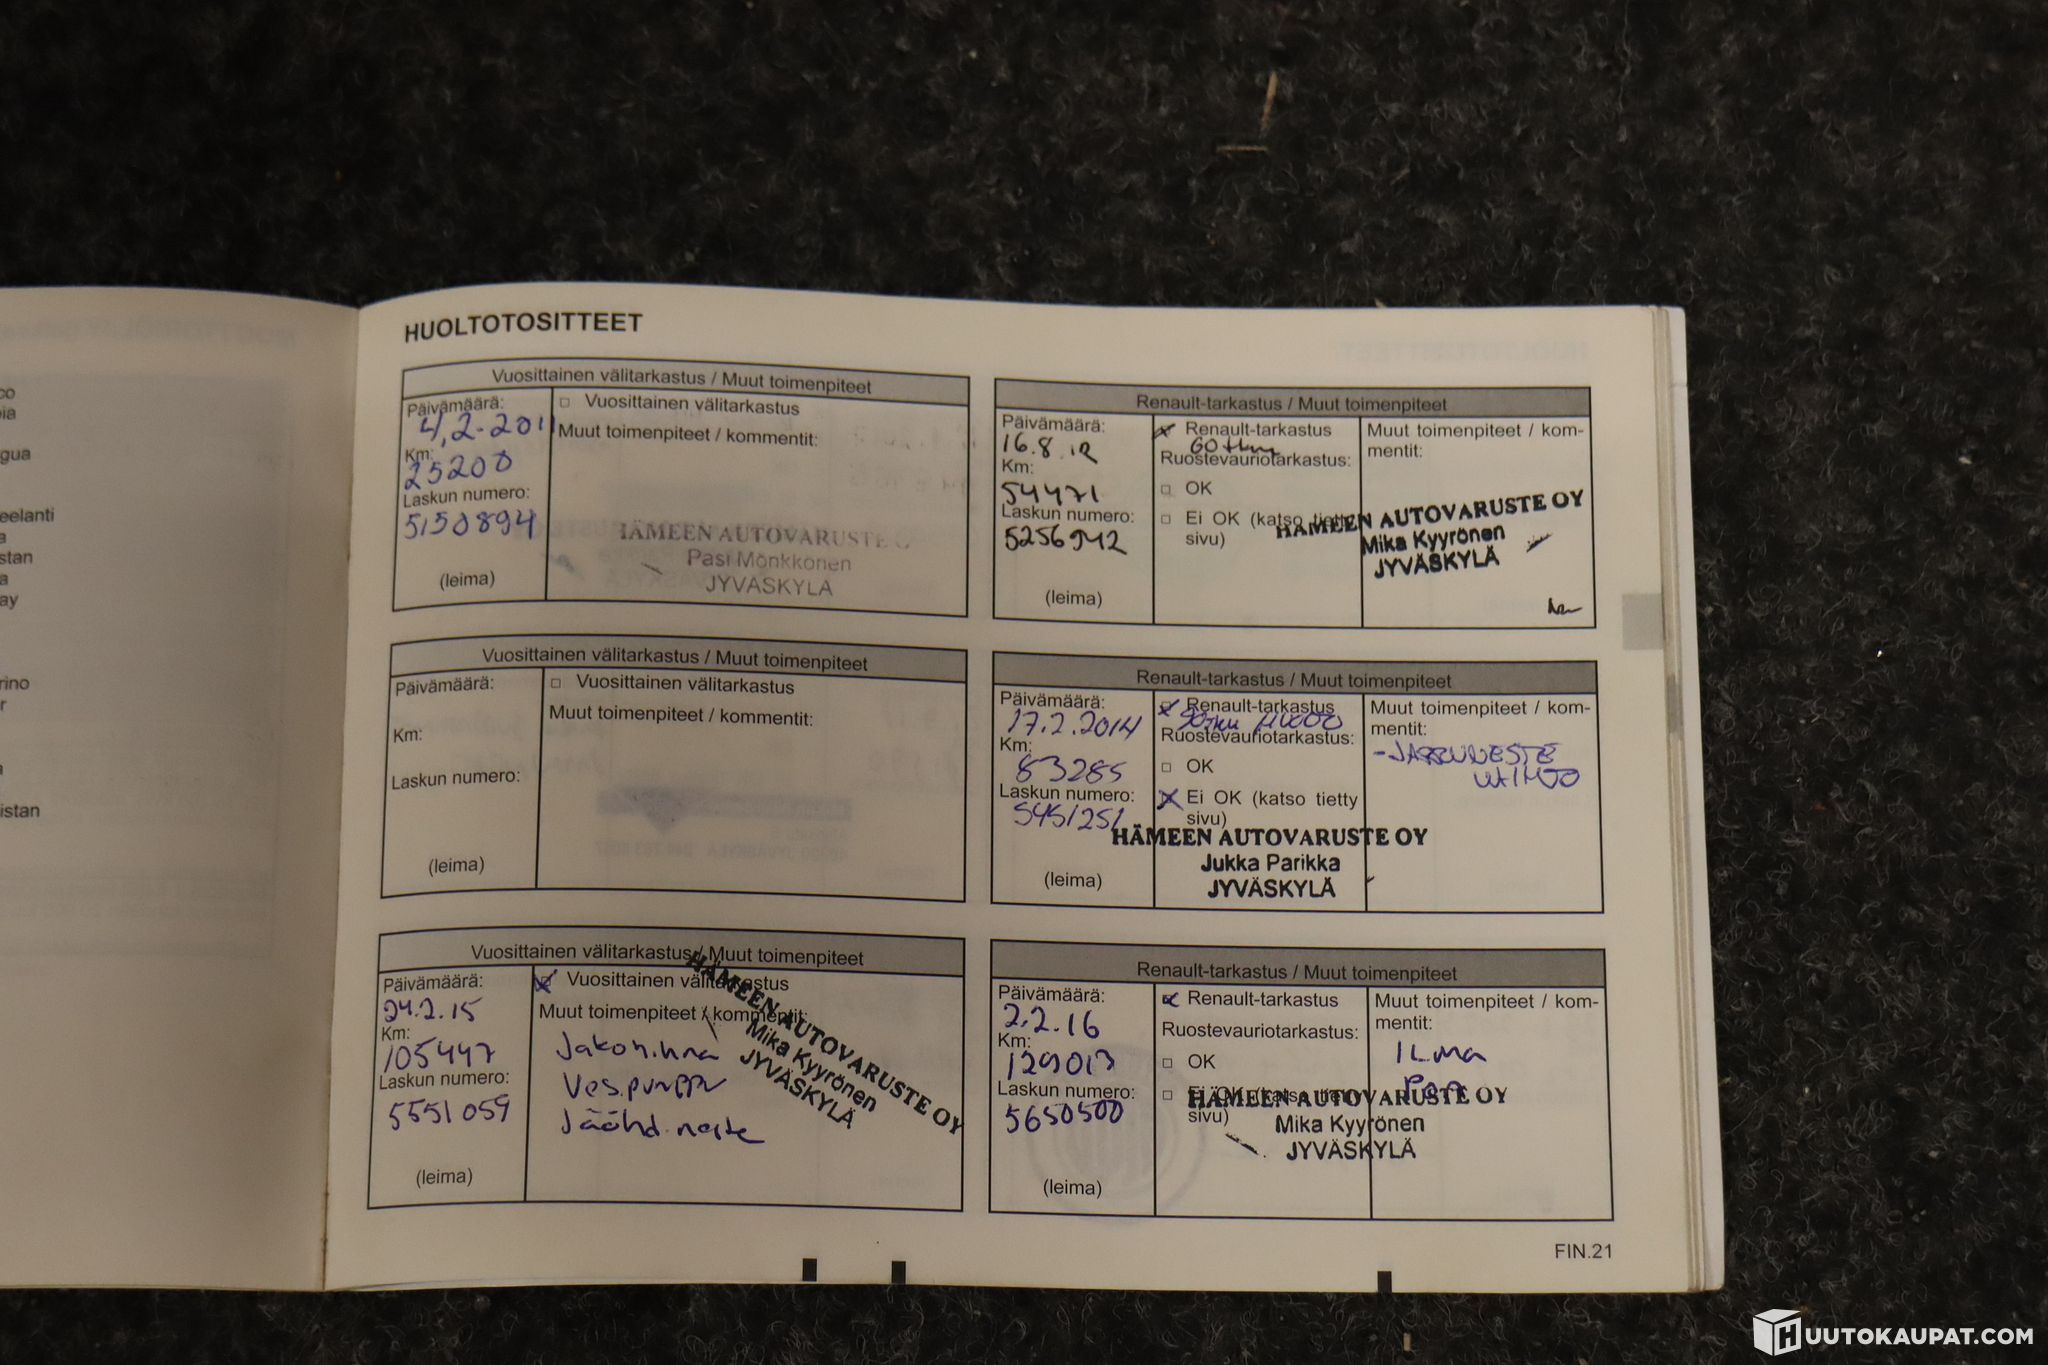 HUOLTOTOSITTEET
Vuosittainen välitarkastus / Muut toimenpiteet
Päivämäärä:
4,2.2011
Km:
25200
Laskun numero:
5150894
(leima)
□ Vuosittainen välitarkastus
Muut toimenpiteet / kommentit:
HÄMEEN AUTOVARUSTE O
Pasi Mönkkönen
JYVÄSKYLÄ
Renault-tarkastus / Muut toimenpiteet
Päivämäärä:
16.8.12
Km:
54471
Laskun numero:
5256942
(leima)
Renault-tarkastus
60 tkm
Ruostevauriotarkastus:
□ OK
□ Ei OK (katso tietty
sivu)
Muut toimenpiteet / kom-
mentit:
HÄMEEN AUTOVARUSTE OY
Mika Kyyrönen
JYVÄSKYLÄ
Vuosittainen välitarkastus / Muut toimenpiteet
Päivämäärä:
Km:
Laskun numero:
(leima)
□ Vuosittainen välitarkastus
Muut toimenpiteet / kommentit:
Renault-tarkastus / Muut toimenpiteet
Päivämäärä:
17.2.2014
Km:
83285
Laskun numero:
5451251
(leima)
Renault-tarkastus
HUOLTO
Ruostevauriotarkastus:
□ OK
Ei OK (katso tietty
sivu)
Muut toimenpiteet / kom-
mentit:
-JARRUNESTE
VAIHTO
HÄMEEN AUTOVARUSTE OY
Jukka Parikka
JYVÄSKYLÄ
Vuosittainen välitarkastus / Muut toimenpiteet
Päivämäärä:
24.2.15
Km:
105447
Laskun numero:
5551059
(leima)
Vuosittainen välitarkastus
Muut toimenpiteet / kommentit:
Jakoh.hna
Ves.pumppu
Jäähd.neste
HÄMEEN AUTOVARUSTE OY
Mika Kyyrönen
JYVÄSKYLÄ
Renault-tarkastus / Muut toimenpiteet
Päivämäärä:
2.2.16
Km:
129013
Laskun numero:
5650500
(leima)
Renault-tarkastus
Ruostevauriotarkastus:
□ OK
□ Ei OK (katso tietty
sivu)
Muut toimenpiteet / kom-
mentit:
ILMA
HÄMEEN AUTOVARUSTE OY
Mika Kyyrönen
JYVÄSKYLÄ
FIN.21
eelanti
stan
ay
rino
istan
HUUTOKAUPAT.COM